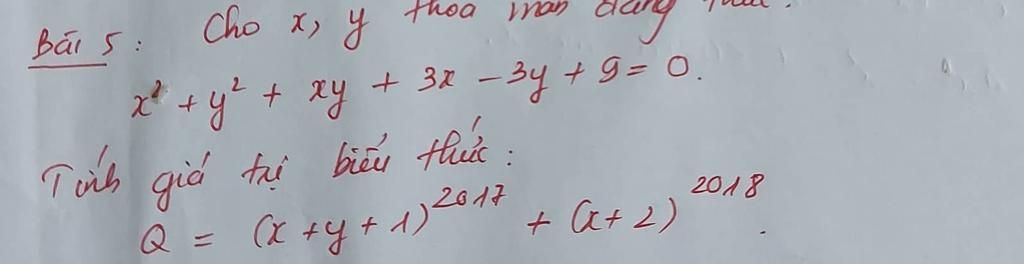 Bài 5: Cho x, y thỏa mãn đẳng thức:
x² + y² + xy + 3x - 3y + 9 = 0.
Tính giá trị biểu thức:
Q = (x + y + 1)²⁰¹⁷ + (x + 2)²⁰¹⁸.